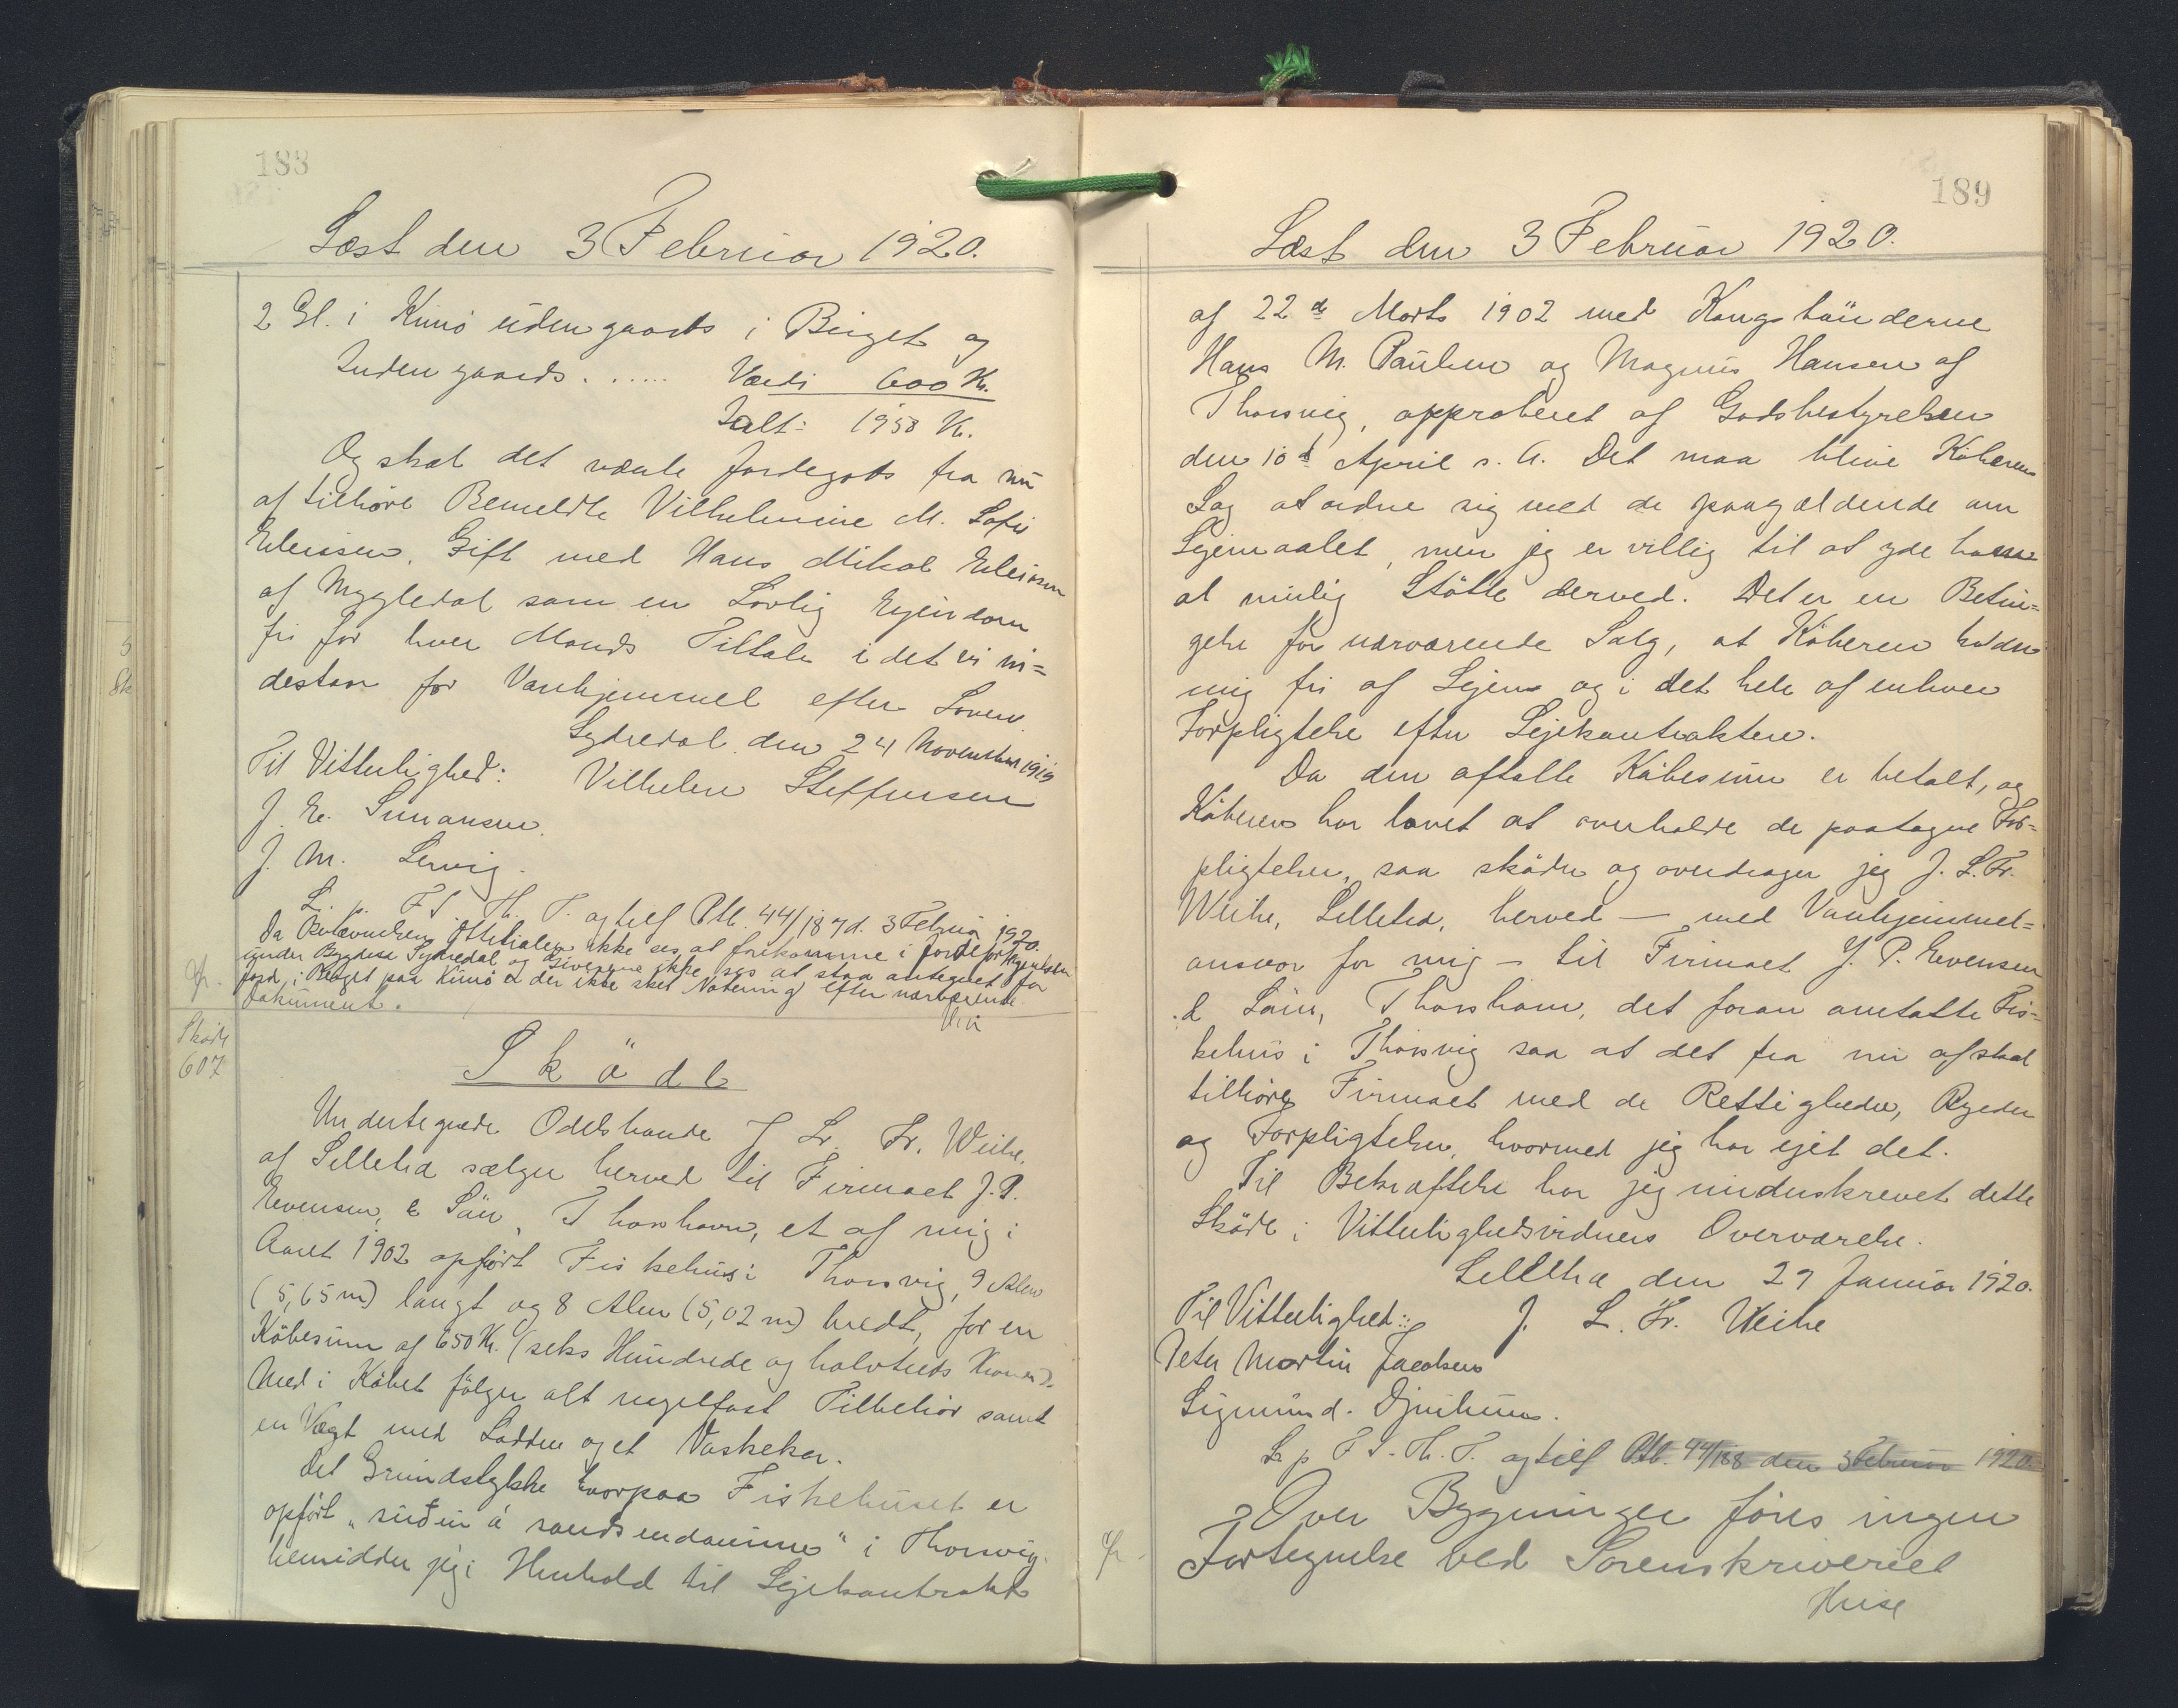 188
Læst den 3 Februar 1920.
2 Gl. i Kunö udengaards i Biuget og
Indengaards...... Værdi 600 Kr.
Ialt: 1958 Kr.
Og skal det nævnte Jordegods fra nu
af tilhøre Bemeldte Vilhelmine M. Sofie
Eleissen. Gift med Hans Mikal Eleissen
af Mygledal som en Lovlig Ejendom
fri for hver Mands Tiltale i det vi in=
destaar for Vanhjemmel efter Loven
Sydredal den 24 November 1919
Til Vitterlighed: Vilhelm Steffensen
J. E. Simonsen.
J. M. Lervig.
L. p. F S Th. T. og tilf Ptb. 44/187 d. 3 Februar 1920.
Da ikke ses at forekomme i Jordefortegnelsen
under Bygden Sydredal og Giverne ikke ses at staa antegnet for
Jord i Biuget paa Kunö er der ikke sket Notering efter nærværende
Dokument.
Skøde
607
Sköde
Undertegnede Odelsbonde J. L. Fr. Weihe.
af Selletræ sælger herved til Firmaet J. P.
Evensen & Sön, Thorshavn, et af mig i
Aaret 1902 opført Fiskehus i Thorsvig, 9 Alen
(5,65 m) langt og 8 Alen (5,02 m) bredt, for en
Købesum af 650 Kr. (seks Hundrede og halvtreds Kroner).
Med i Købet følger alt nagelfast Tilbehør samt
en Vægt med Lodder og et Vaskekar.
Det Grundstykke hvorpaa Fiskehuset er
opført „ suðuri á sandsendanum“ i Thorsvig.
besidder jeg i Henhold til Lejekontrakt
189
Læst den 3 Februar 1920.
af 22de Marts 1902 med Kongsbönderne
Hans M. Paulsen og Magnus Hansen af
Thorsvig, approberet af Godsbestyrelsen
den 10d April s. A. Det maa blive Køberens
Sag at ordne sig med de paagældende om
Lejemaalet, men jeg er villig til at yde ham
al mulig Støtte derved. Det er en Betin=
gelse for nærværende Salg, at Køberen holder
mig fri af Lejen og i det hele af enhver
Forpligtelse efter Lejekontrakten.
Da den aftalte Købesum er betalt, og
Køberen har lovet at overholde de paatagne For=
pligtelser, saa skøder og overdrager jeg J. L. Fr.
Weihe, Selletræ, herved — med Vanhjemmel=
ansvar for mig — til Firmaet J. P. Evensen
& Sön, Thorshavn, det foran omtalte Fis=
kehus i Thorsvig saa at det fra nu af skal
tilhøre Firmaet med de Rettigheder, Byrder
og Forpligtelser, hvormed jeg har ejet det.
Til Bekræftelse har jeg underskrevet dette
Skøde i Vitterlighedsvidners Overværelse.
Selletræ den 29 Januar 1920.
Til Vitterlighed: J. L. Fr. Weihe
Peter Martin Jacobsen
Sigmund. Djurhuus.
L. p F S. Th. T. og tilf Ptb. 44/188 den 3 Februar 1920.
Over Bygninger føres ingen
Fortegnelse ved Sorenskriveriet